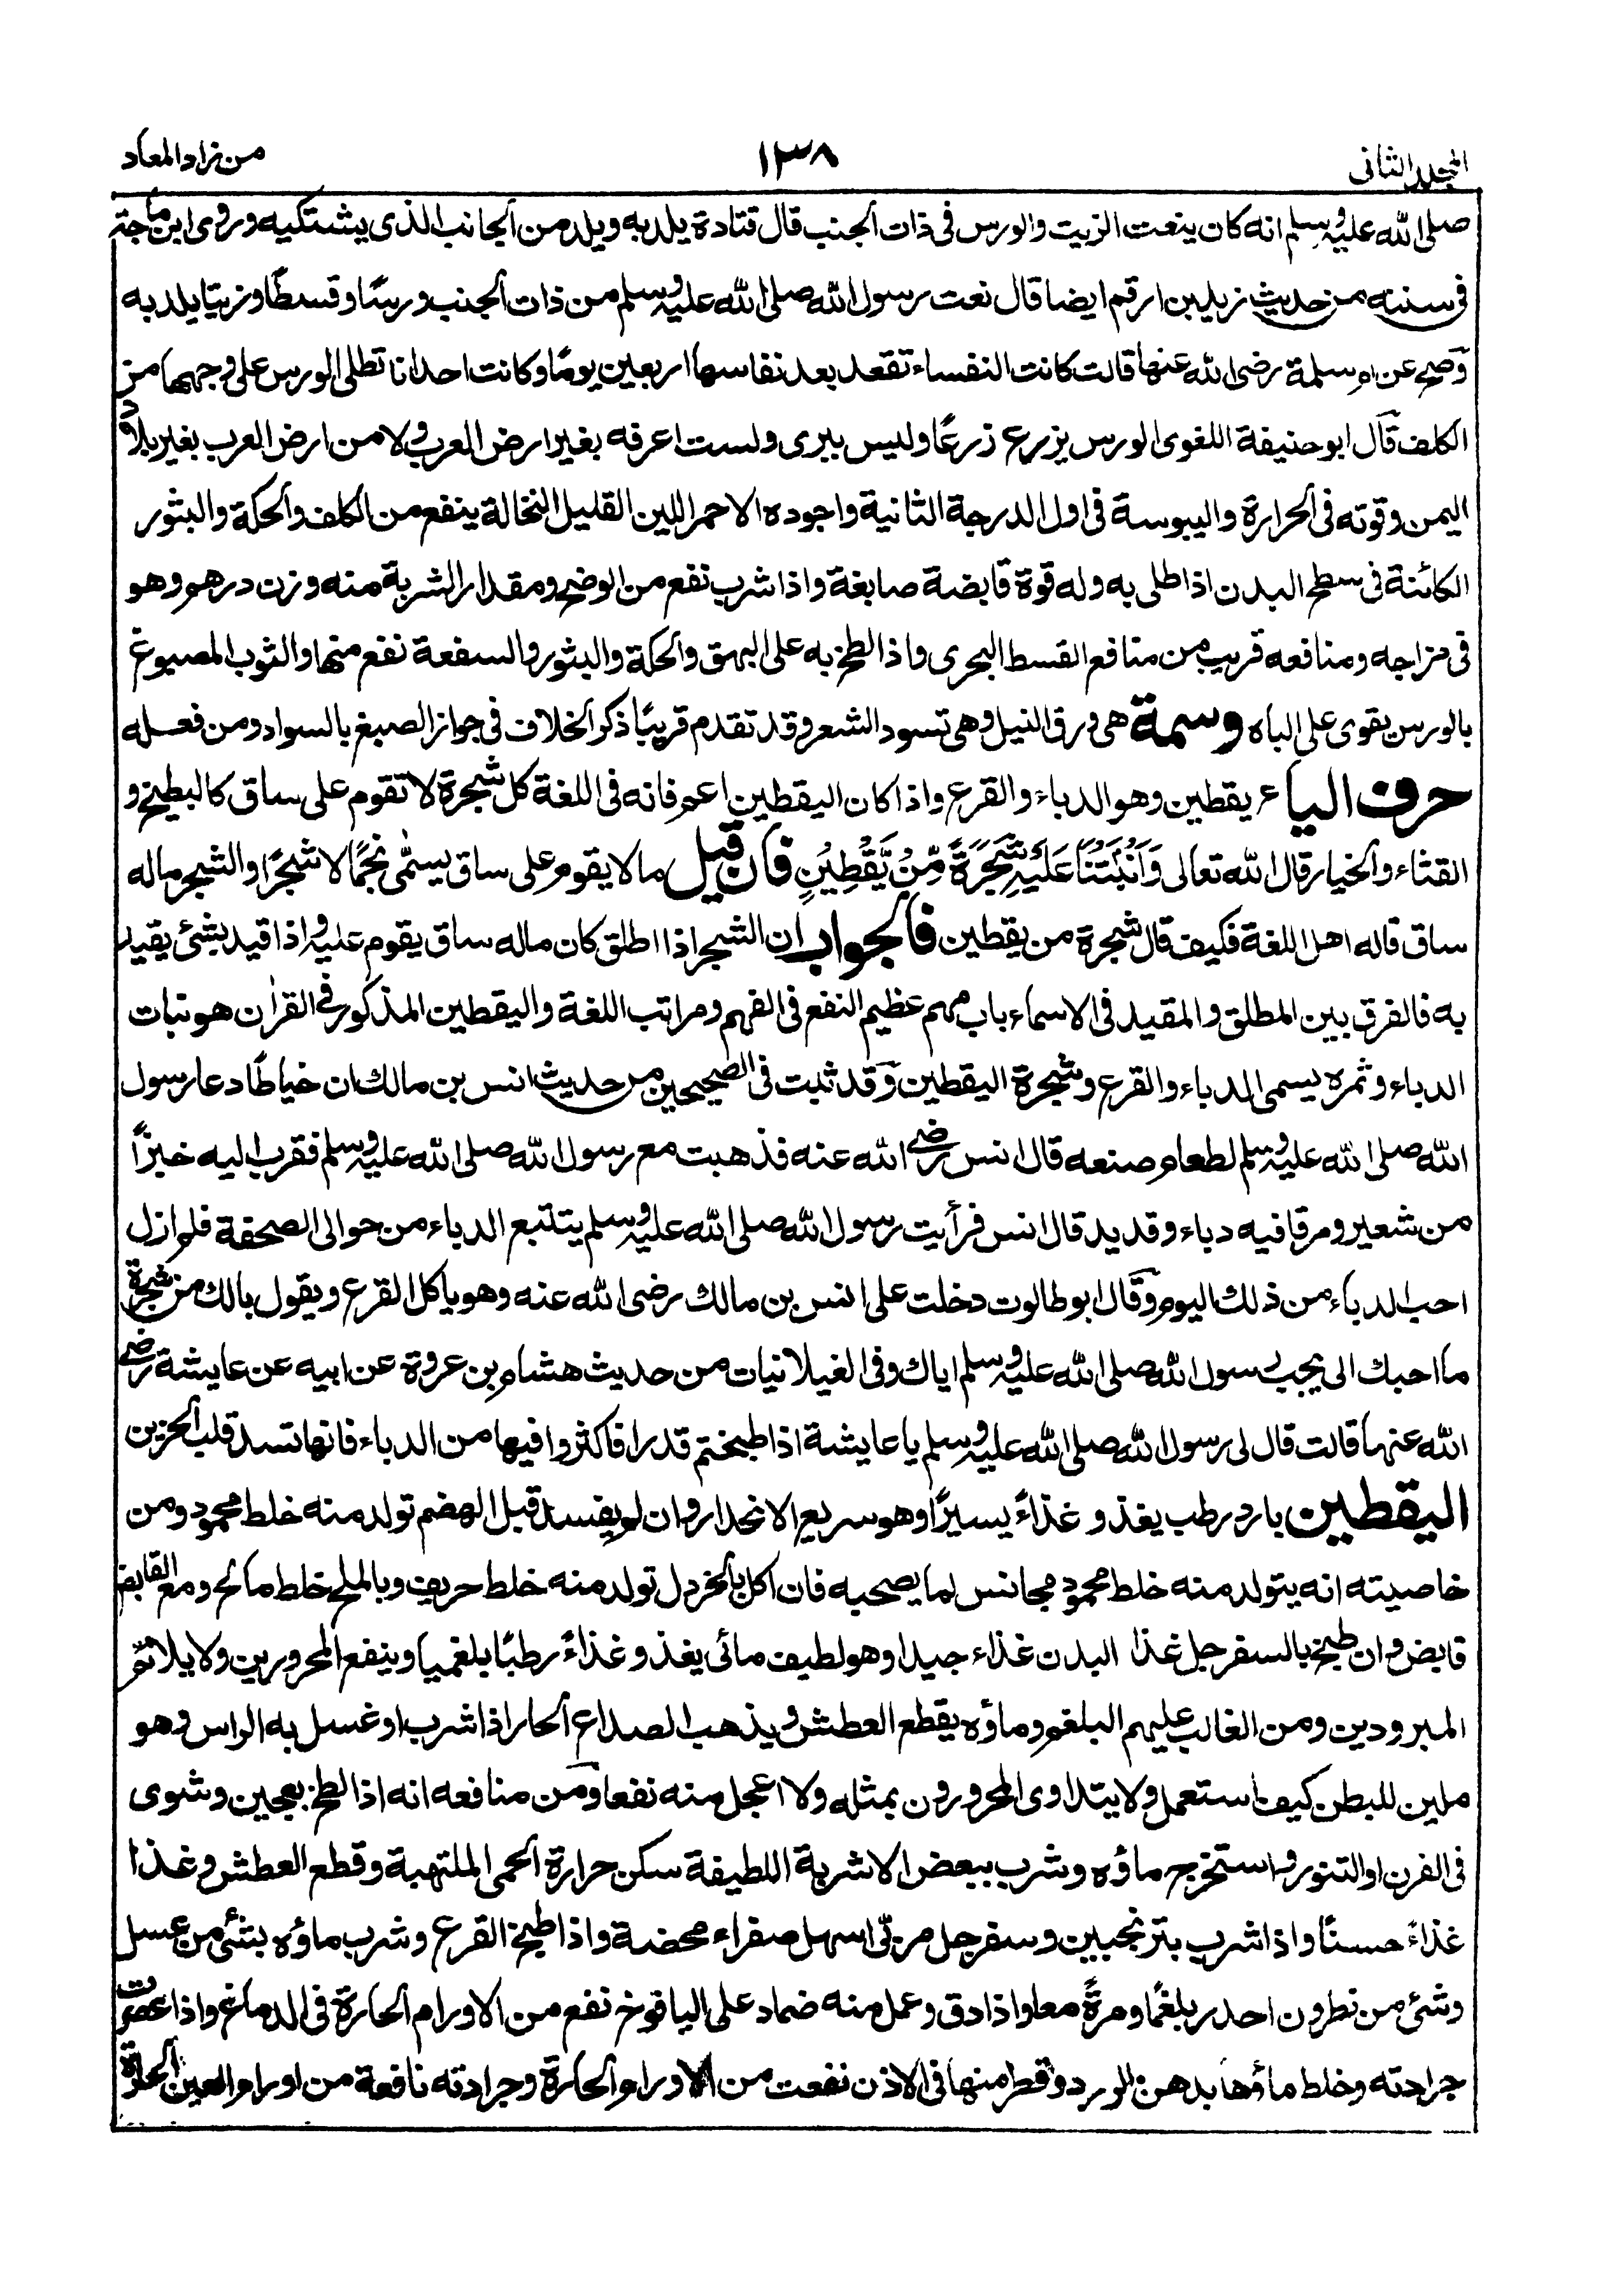 المجلد الثانى
١٣٨
من زاد المعاد
صلى الله عليه وسلم انه كان ينعت الزيت والورس فى ذات الجنب قال قتادة يلد به ويلد من الجانب الذى يشتكيه وروى ابن ماجة
فى سننه من حديث زيد بن ارقم ايضا قال نعت رسول الله صلى الله عليه وسلم من ذات الجنب ورسًا وقسطًا وزيتا يلد به
وصح عن ام سلمة رضى الله عنها قالت كانت النفساء تقعد بعد نفاسها اربعين يومًا وكانت احدانا تطلى الورس على وجهها من
الكلف قال ابو حنيفة اللغوى الورس يزرع زرعًا وليس ببرى ولست اعرفه بغير ارض العرب ولا من ارض العرب بغير بلاد
اليمن وقوته فى الحرارة واليبوسة فى اول الدرجة الثانية واجوده الاحمر اللين القليل النخالة ينفع من الكلف والحكة والبثور
الكائنة فى سطح البدن اذا طلى به وله قوة قابضة صابغة واذا شرب نفع من الوضح ومقدار الشربة منه وزن درهم وهو
فى مزاجه ومنافعه قريب من منافع القسط البحرى واذا لطخ به على البهق والحكة والبثور والسفعة نفع منها والثوب المصبوغ
بالورس يقوى على الباه وسمة هى ورق النيل وهى تسود الشعر وقد تقدم قريبًا ذكر الخلاف فى جواز الصبغ بالسواد ومن فعله
حرف الياء يقطين وهو الدباء والقرع واذا كان اليقطين اعم فانه فى اللغة كل شجرة لا تقوم على ساق كالبطيخ و
القثاء والخيار قال الله تعالى وَاَنْۢبَتْنَا عَلَيْهِ شَجَرَةً مِّنْ يَّقْطِيْنٍ فان قيل ما لا يقوم على ساق يسمّى نجمًا لا شجرًا والشجر ماله
ساق قاله اهل اللغة فكيف قال شجرة من يقطين فالجواب ان الشجر اذا اطلق كان ماله ساق يقوم عليه واذا قيد بشئ يقيد
به فالفرق بين المطلق والمقيد فى الاسماء باب مهم عظيم النفع فى الفهم ومراتب اللغة واليقطين المذكور فى القراٰن هو نبات
الدباء وثمره يسمى الدباء والقرع وشجرة اليقطين وقد ثبت فى الصحيحين من حديث انس بن مالك ان خياطًا دعا رسول
الله صلى الله عليه وسلم لطعام صنعه قال انس رضى الله عنه فذهبت مع رسول الله صلى الله عليه وسلم فقرب اليه خبزًا
من شعير ومرقا فيه دباء وقديد قال انس فرأيت رسول الله صلى الله عليه وسلم يتتبع الدباء من حوالى الصحفة فلم ازل
احب الدباء من ذلك اليوم وقال ابو طالوت دخلت على انس بن مالك رضى الله عنه وهو ياكل القرع ويقول يالك من شجرة
ما احبك الى يحب رسول الله صلى الله عليه وسلم اياك وفى الغيلانيات من حديث هشام بن عروة عن ابيه عن عايشة رضى
الله عنها قالت قال لى رسول الله صلى الله عليه وسلم يا عايشة اذا طبختم قدرا فاكثروا فيها من الدباء فانها تسد قلب الحزين
اليقطين بارد رطب يغذو غذاءً يسيرًا وهو سريع الانحدار وان لم يفسد قبل الهضم تولد منه خلط محمود ومن
خاصيته انه يتولد منه خلط محمود مجانس لما يصحبه فان اكل بالخردل تولد منه خلط حريف وبالملح خلط مالح ومع القابض
قابض وان طبخ بالسفرجل غذا البدن غذاء جيدا وهو لطيف مائى يغذو غذاءً رطبًا بلغميا وينفع المحرورين ولا يلائم
المبرودين ومن الغالب عليهم البلغم وماؤه يقطع العطش ويذهب الصداع الحار اذا شرب او غسل به الراس وهو
ملين للبطن كيف استعمل ولا يتداوى المحرورون بمثله ولا اعجل منه نفعا ومن منافعه انه اذا لطخ بعجين وشوى
فى الفرن او التنور واستخرج ماؤه وشرب ببعض الاشربة اللطيفة سكن حرارة الحمى الملتهبة وقطع العطش وغذا
غذاءً حسنًا واذا شرب بترنجبين وسفرجل مربّى اسهل صفراء محضة واذا طبخ القرع وشرب ماؤه بشئ من عسل
وشئ من نطرون احدر بلغمًا ومرةً معا واذا دق وعمل منه ضماد على اليافوخ نفع من الاورام الحارة فى الدماغ واذا عصرت
جرادته وخلط ماؤها بدهن الورد وقطر منها فى الاذن نفعت من الاورام الحارة وجرادته نافعة من اورام العين الحارة